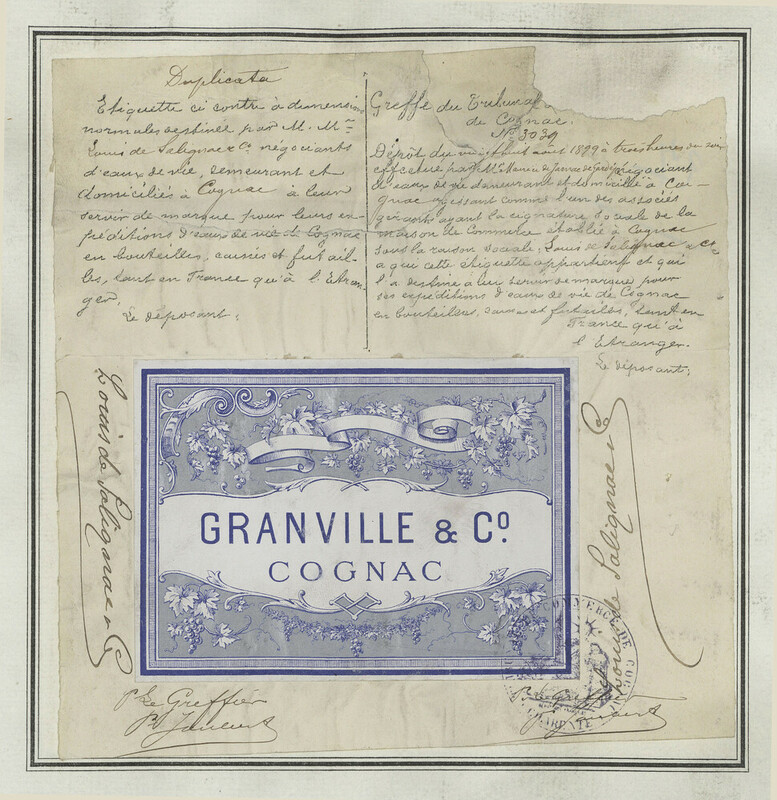 Duplicata
Etiquette ci contre à dimensions
normales destinée par M. Mrs
Louis de Salignac & Co négociants
d'eaux de vie, demeurant et
domiciliés à Cognac à leur
servir de marque pour leurs ex-
péditions d'eaux de vie de Cognac
en bouteilles, caisses et futail-
les, tant en France qu'à l'Etran-
ger.
Le déposant:
Greffe du Tribunal
de Cognac.
No 3039
Dépôt du vingt huit août 1899 à trois heures du soir
effectué par Mr négociant
d'eaux de vie demeurant et domicilié à Co-
gnac agissant comme l'un des associés
gérants ayant la signature sociale de la
maison de Commerce établie à Cognac
sous la raison sociale, Louis de Salignac & Co
à qui cette étiquette appartient et qui
l'a destine à leur servir de marque pour
ses expéditions d'eaux de vie de Cognac
en bouteilles, caisses et futailles, tant en
France qu'à
l'Etranger.
Le déposant:
Louis de Salignac & Co
GRANVILLE & Co
COGNAC
Louis de Salignac & Co
COMMERCE DE COGNAC
CHARENTE
Le Greffier
Le Greffier